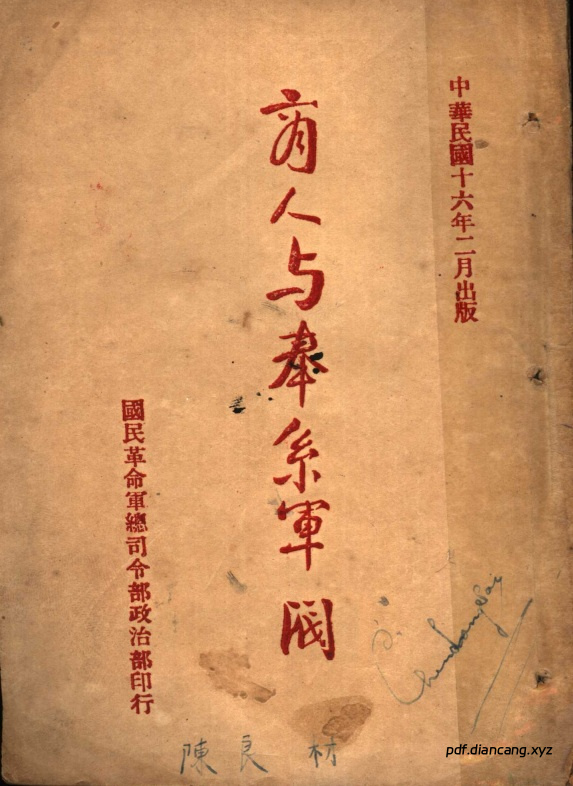 中華民國十六年二月出版
商人与奉系軍閥
國民革命軍總司令部政治部印行
陳良材
pdf.diancang.xyz